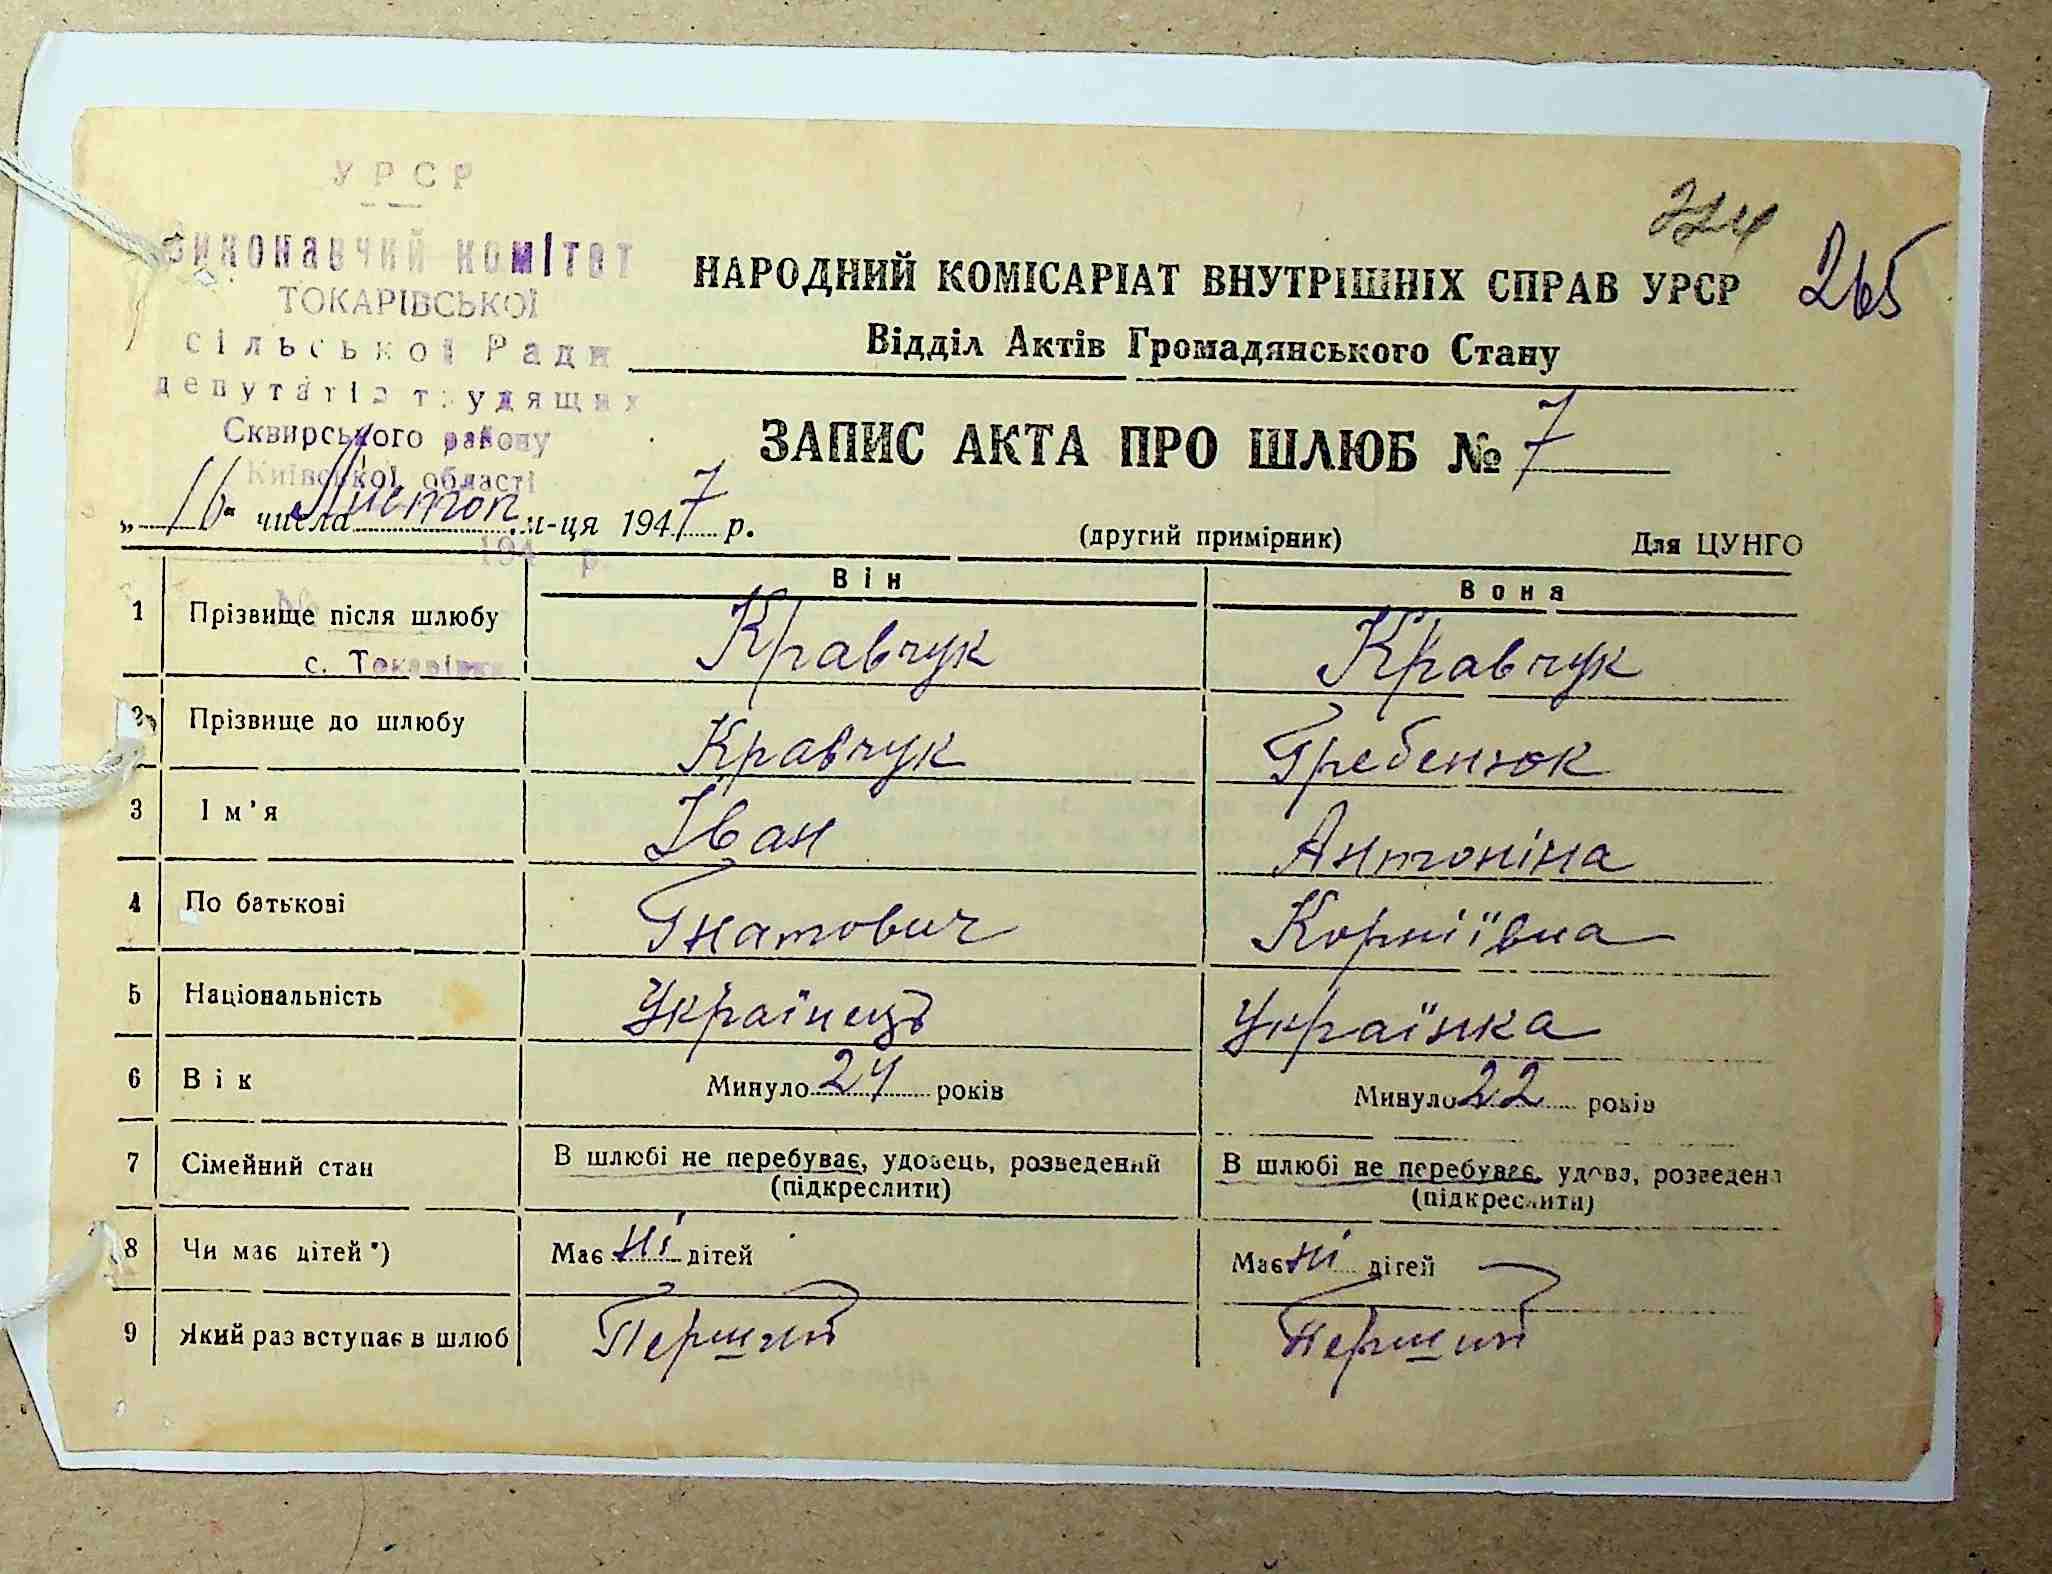 УРСР
Виконавчий комітет
ТОКАРІВСЬКОЇ
сільської Ради
депутатів трудящих
Сквирського району
Київської області
194 р.
с. Токарівка
265
НАРОДНИЙ КОМІСАРІАТ ВНУТРІШНІХ СПРАВ УРСР
Відділ Актів Громадянського Стану
ЗАПИС АКТА ПРО ШЛЮБ № 7
„16“ числа Листоп. м-ця 1947 р.
(другий примірник) Для ЦУНГО
Він Вона
1 Прізвище після шлюбу Кравчук Кравчук
2 Прізвище до шлюбу Кравчук Гребенюк
3 Ім'я Іван Антоніна
4 По батькові Гнатович Корніївна
5 Національність Українець Українка
6 Вік Минуло 24 років Минуло 22 років
7 Сімейний стан В шлюбі не перебуває, удовець, розведений В шлюбі не перебуває, удова, розведена
(підкреслити) (підкреслити)
8 Чи має дітей*) Має ні дітей Має ні дітей
9 Який раз вступає в шлюб Перший Перший